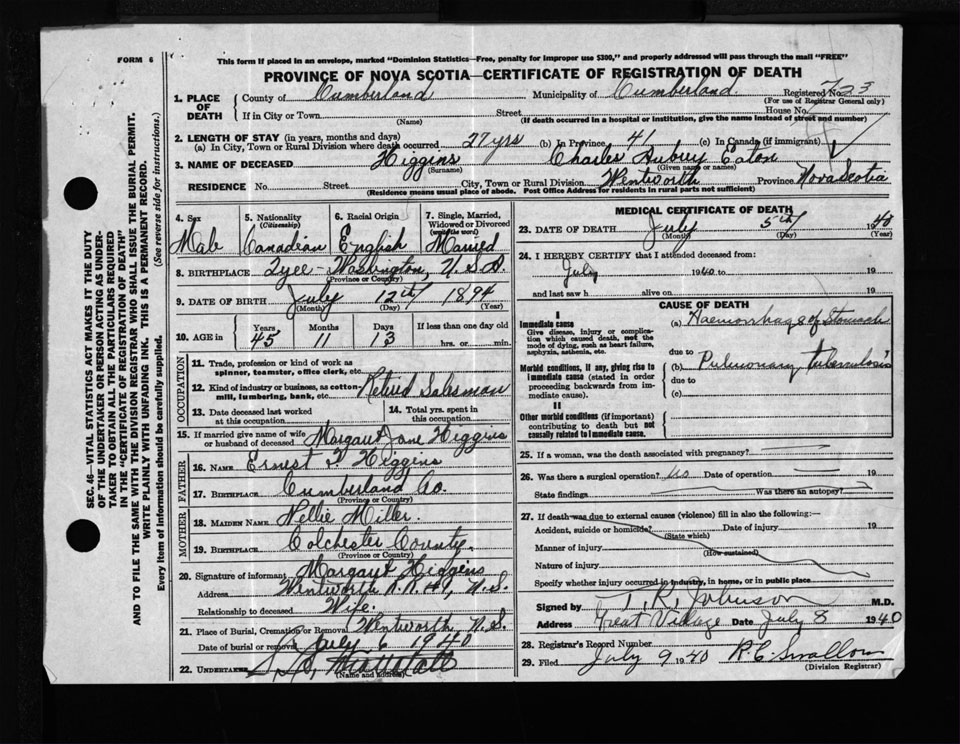 FORM 6
This form if placed in an envelope, marked "Dominion Statistics—Free, penalty for improper use $300," and properly addressed will pass through the mail "FREE"
PROVINCE OF NOVA SCOTIA—CERTIFICATE OF REGISTRATION OF DEATH
1. PLACE OF DEATH County of Cumberland Municipality of Cumberland. Registered No. 723
(For use of Registrar General only)
If in City or Town Street House No.
(Name) (If death occurred in a hospital or institution, give the name instead of street and number)
2. LENGTH OF STAY (in years, months and days)
(a) In City, Town or Rural Division where death occurred 27 yrs (b) In Province 41 (c) In Canada (if immigrant)
3. NAME OF DECEASED Higgins Charles Aubrey Eaton
(Surname) (Given name or names)
RESIDENCE No. Street City, Town or Rural Division Wentworth Province Nova Scotia
(Residence means usual place of abode. Post Office Address for residents in rural parts not sufficient)
4. Sex 5. Nationality (Citizenship) 6. Racial Origin 7. Single, Married, Widowed or Divorced (write the word)
Male Canadian English Married
8. BIRTHPLACE Tyee - Washington, U.S.A.
(Province or Country)
9. DATE OF BIRTH July 12th 1894
(Month) (Day) (Year)
10. AGE in Years Months Days If less than one day old
45 11 13 hrs. or min.
OCCUPATION
11. Trade, profession or kind of work as spinner, teamster, office clerk, etc.
12. Kind of industry or business, as cotton-mill, lumbering, bank, etc. Retired Salesman
13. Date deceased last worked at this occupation 14. Total yrs. spent in this occupation
15. If married give name of wife or husband of deceased Margaret Jane Higgins
FATHER
16. NAME Ernest F. Higgins
17. BIRTHPLACE Cumberland Co.
(Province or Country)
MOTHER
18. MAIDEN NAME Nellie Miller.
19. BIRTHPLACE Colchester County.
(Province or Country)
20. Signature of informant Margaret Higgins
Address Wentworth R.R. #1, N.S.
Relationship to deceased Wife.
21. Place of Burial, Cremation or Removal Wentworth N.S.
Date of burial or removal July 6 1940
22. UNDERTAKER
(Name and address)
MEDICAL CERTIFICATE OF DEATH
23. DATE OF DEATH July 5th 1940
(Month) (Day) (Year)
24. I HEREBY CERTIFY that I attended deceased from:
July 1940 to 19
and last saw h alive on 19
CAUSE OF DEATH
I
Immediate cause (a) Haemorrhage of Stomach
Give disease, injury or complication which caused death, not the mode of dying, such as heart failure, asphyxia, asthenia, etc.
due to
Morbid conditions, if any, giving rise to immediate cause (stated in order proceeding backwards from immediate cause). (b) Pulmonary tuberculosis
due to
(c)
II
Other morbid conditions (if important) contributing to death but not causally related to immediate cause.
25. If a woman, was the death associated with pregnancy?
26. Was there a surgical operation? no Date of operation 19
State findings Was there an autopsy?
27. If death was due to external causes (violence) fill in also the following:—
Accident, suicide or homicide? Date of injury 19
(State which)
Manner of injury
(How sustained)
Nature of injury
Specify whether injury occurred in industry, in home, or in public place
Signed by T. R. Johnson M.D.
Address Great Village Date July 8 1940
28. Registrar's Record Number
29. Filed July 9 1940 R.C. Swallow
(Division Registrar)
SEC. 46—VITAL STATISTICS ACT MAKES IT THE DUTY
OF THE UNDERTAKER OR PERSON ACTING AS UNDER-
TAKER TO OBTAIN ALL THE PARTICULARS REQUIRED
IN THE "CERTIFICATE OF REGISTRATION OF DEATH"
AND TO FILE THE SAME WITH THE DIVISION REGISTRAR WHO SHALL ISSUE THE BURIAL PERMIT.
WRITE PLAINLY WITH UNFADING INK. THIS IS A PERMANENT RECORD.
Every item of information should be carefully supplied. (See reverse side for instructions.)